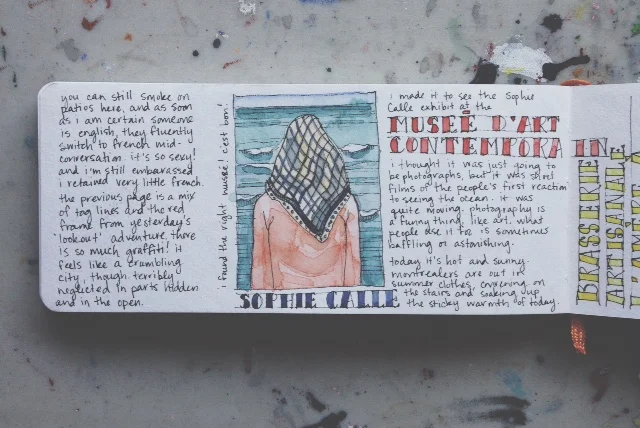 you can still smoke on
patios here, and as soon
as i am certain someone
is english, they fluently
switch to french mid-
conversation. it's so sexy!
and i'm still embarrassed
i retained very little french.
the previous page is a mix
of tag lines and the red
frame from yesterday's
'lookout' adventure. there
is so much graffiti! it
feels like a crumbling
city, though terribly
neglected in parts hidden
and in the open.
i found the right musée! c'est bon!
SOPHIE CALLE
i made it to see the Sophie
Calle exhibit at the
MUSEÉ D'ART
CONTEMPORAIN
i thought it was just going to
be photographs, but it was short
films of the people's first reaction
to seeing the ocean. it was
quite moving. photography is
a funny thing, like art. what
people use it for is sometimes
baffling or astonishing.
today it's hot and sunny.
montrealers are out in
summer clothes, on
the stairs and soaking up
the sticky warmth of today.
BRASSERIE
ARTISANALE